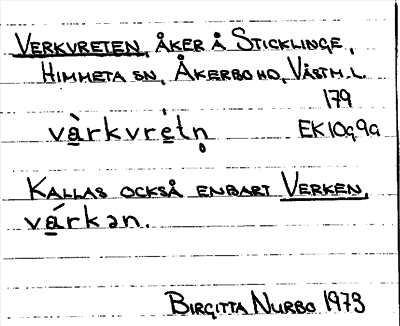 VERKVRETEN, ÅKER Å STICKLINGE,
HIMMETA SN, ÅKERBO HD, VÄSTM. L.
179
và̱rkvré̱tn̥ EK10g9a
KALLAS OCKSÅ ENBART VERKEN,
vá̱rkən.
BIRGITTA NURBO 1973